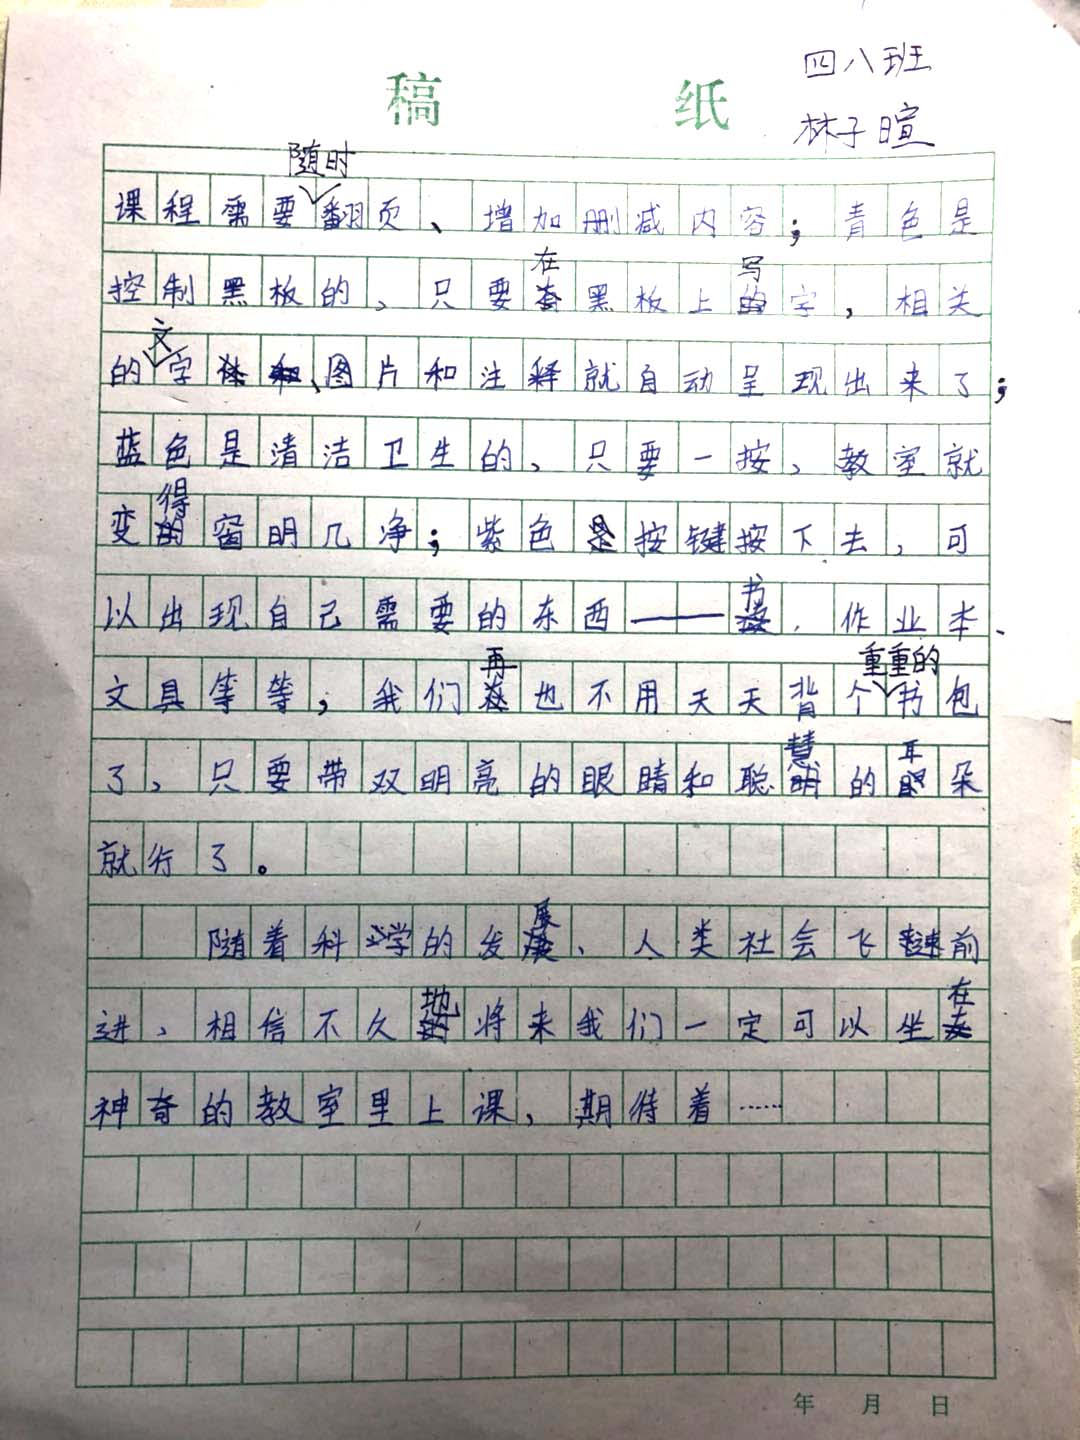 四八班
稿 纸
林子暄
课程需要随时翻页、增加删减内容；青色是
控制黑板的，只要在黑板上写字，相关
的文字、图片和注释就自动呈现出来了；
蓝色是清洁卫生的，只要一按，教室就
变得窗明几净；紫色按键按下去，可
以出现自己需要的东西——书、作业本、
文具等等，我们再也不用天天背个重重的书包
了，只要带双明亮的眼睛和聪慧的耳朵
就行了。
随着科学的发展，人类社会飞速前
进，相信不久将来我们一定可以坐在
神奇的教室里上课，期待着……
年 月 日